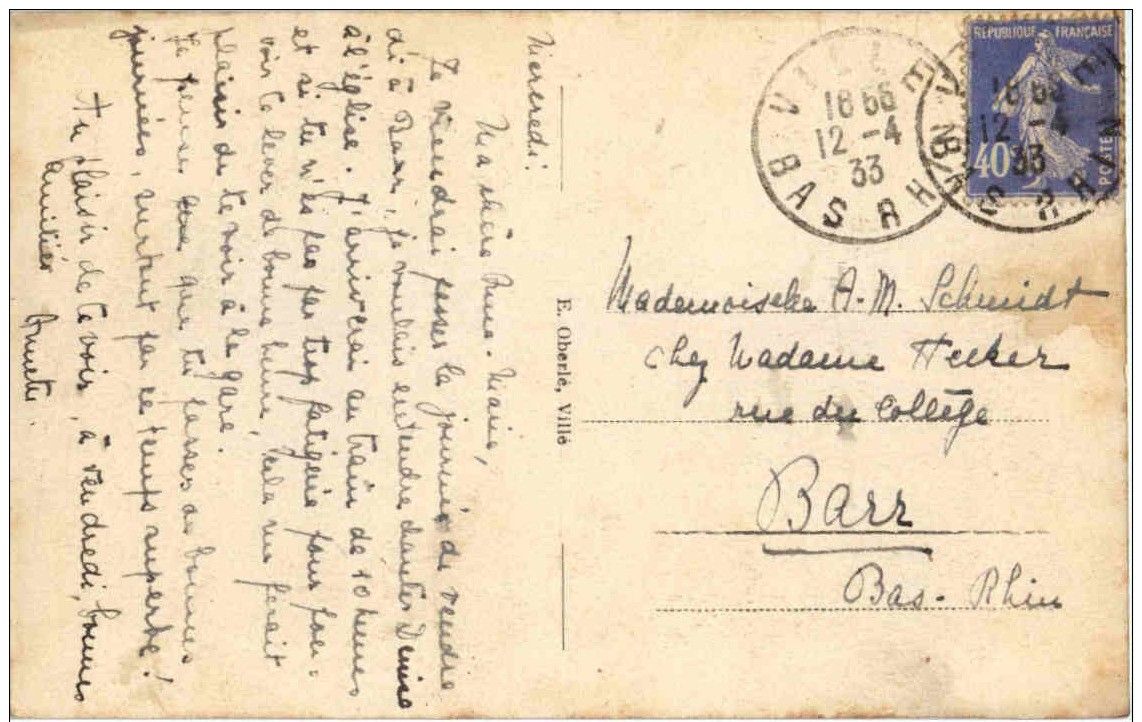 Mercredi.
Ma chère Anne-Marie,
Je viendrai passer la journée de vendre
di à Barr, je voulais entendre chanter Denise
à l'église. J'arriverai au train de 10 heures
et si tu n'es pas par trop fatiguée pour pou-
voir te lever de bonne heure, cela me ferait
plaisir de te voir à la gare.
Je pense que tu passes de bonnes
journées, surtout par ce temps superbe!
Au plaisir de te voir, à vendredi, bonnes
amitiés Annette.
E. Oberlé, Villé
VILLÉ
1866
12 -4
33
BAS RHIN
RÉPUBLIQUE FRANÇAISE
40c
POSTES
VILLÉ
18
12 -4
33
BAS RHIN
Mademoiselle A.M. Schmidt
chez Madame Hecker
rue du Collège
Barr
Bas-Rhin